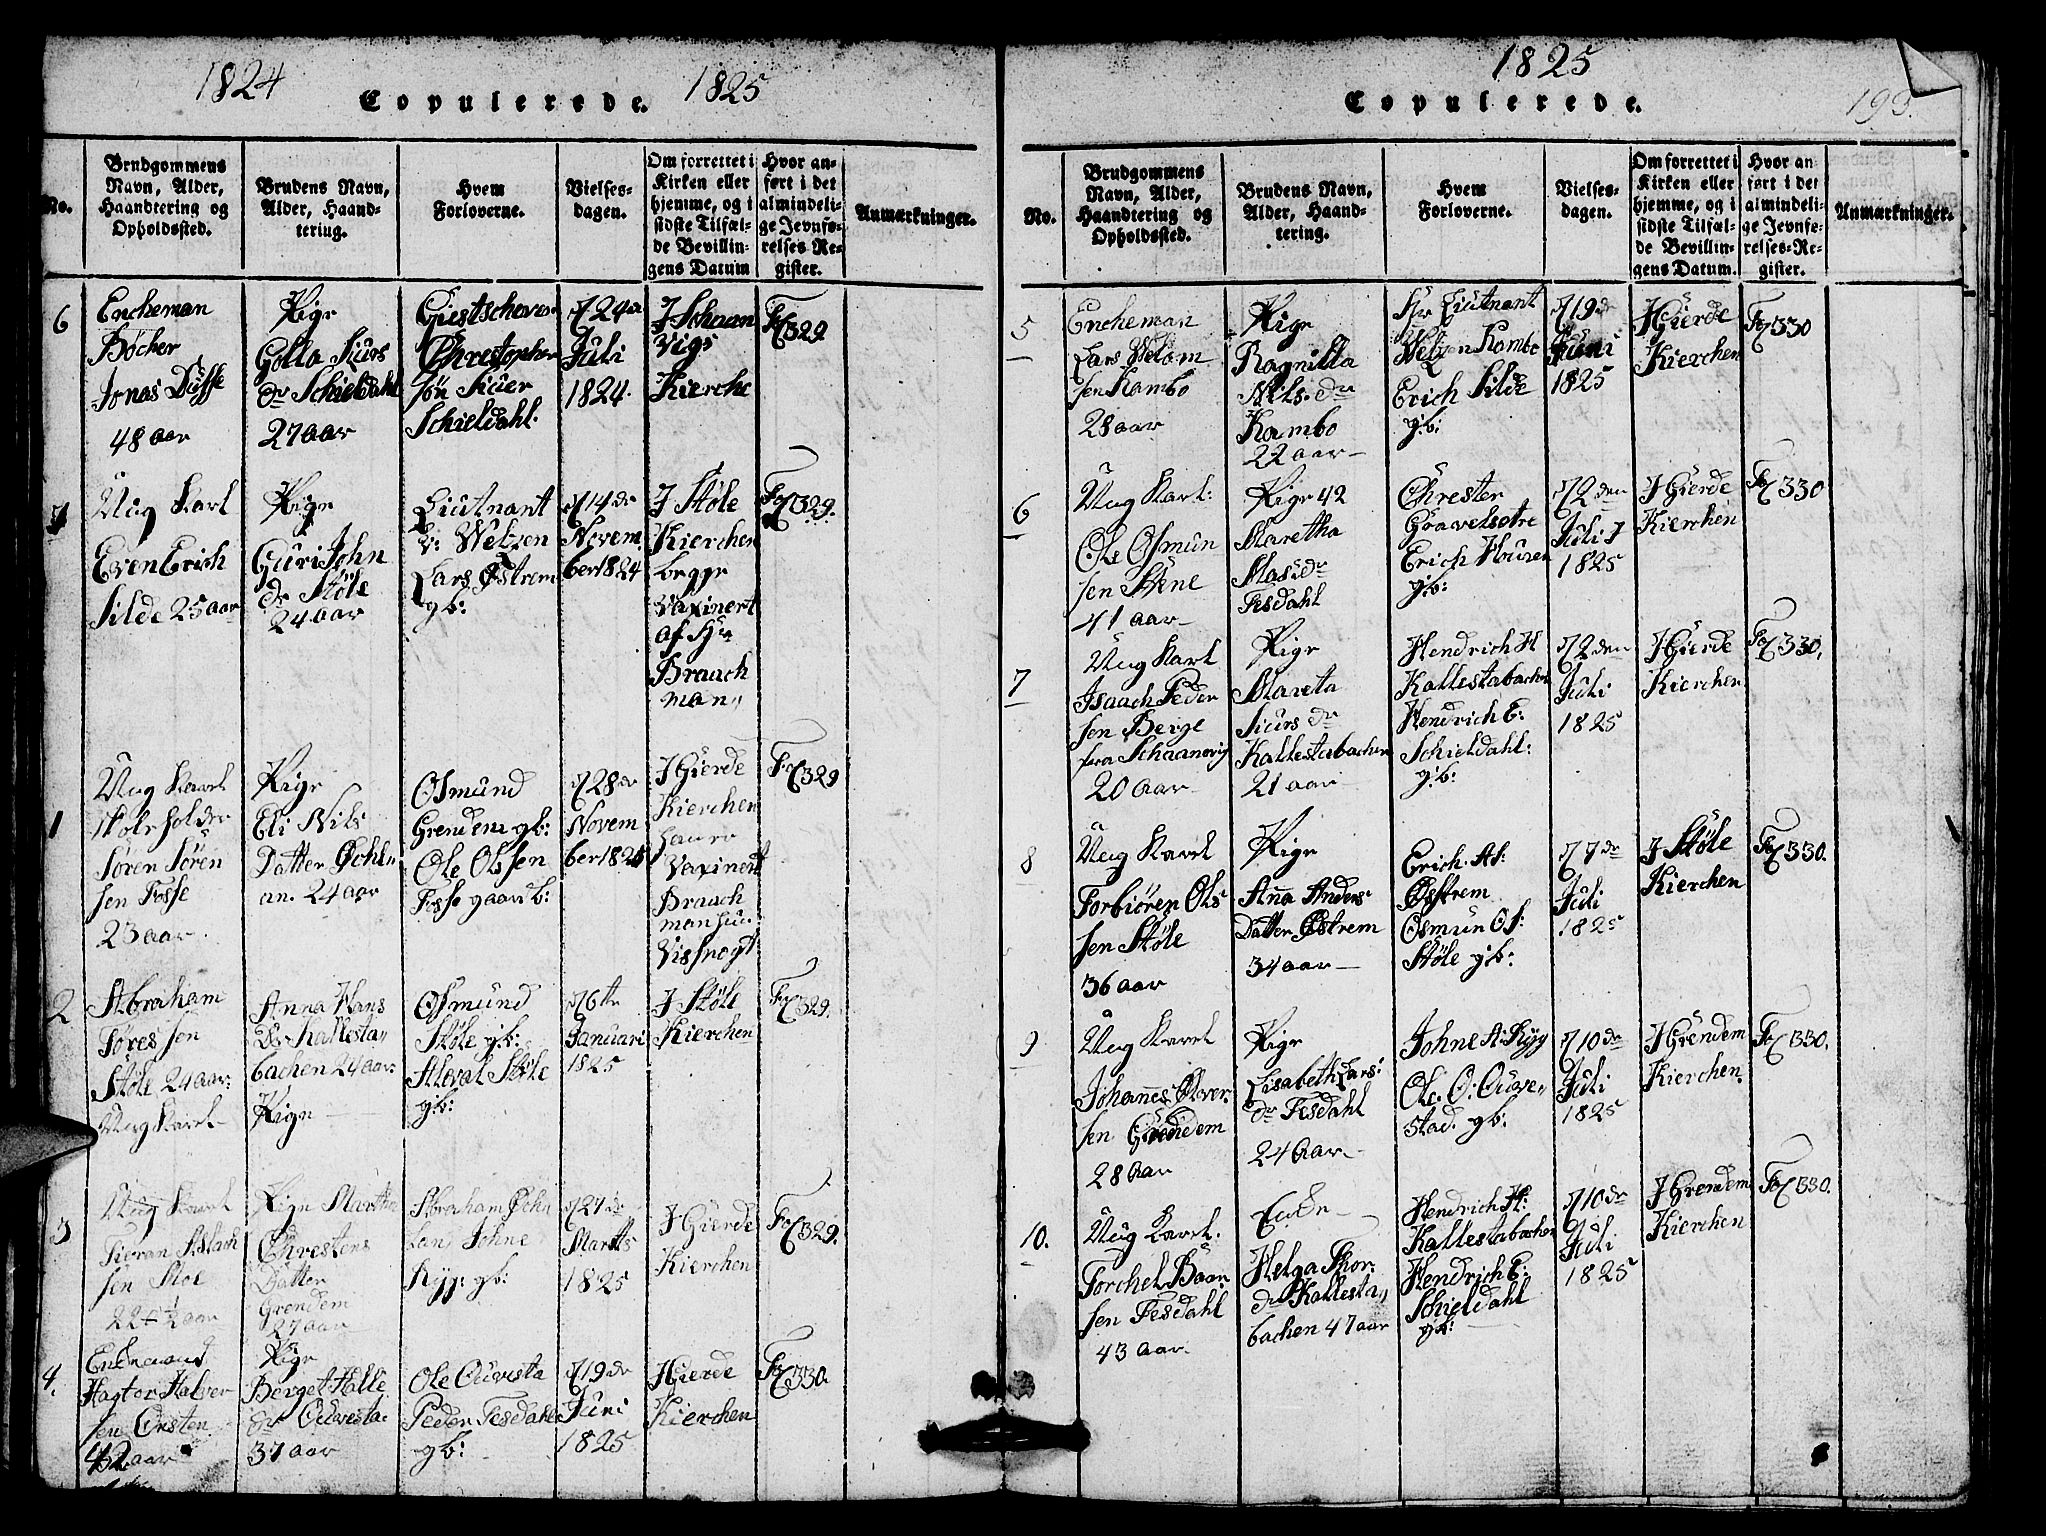 1824
Copulerede.
1825
No.
Brudgommens
Navn, Alder,
Haandtering og
Opholdssted.
Brudens Navn,
Alder, Haand-
tering.
Hvem
Forloverne.
Vielses-
dagen.
Om forrettet i
Kirken eller
hjemme, og i
sidste Tilfæl-
de Bevillin-
gens Datum
Hvor an-
ført i det
almindeli-
ge Jevnfø-
relses Re-
gister.
Anmærkninger.
6
Encheman
Bøcher
Jonas
48 aar
Pige
Golla Siurs
dr Schieldahl
27 aar
Chrestopher
Siuer
Schieldahl.
d 24de
Juli
1824.
J Schaan
vigs
Kierche
Fol 329
7
Ung Karl
Even Erich
Silde 25 aar
Pige
Guri John
dr Støle
24 aar
Liutnant
v: Welzen
Lars Østrem
gb:
d 14de
Novem
ber 1824
J Støle
Kierchen
begge
Vaxinert
af Hr
Braach
man
Fol 329.
1
Ung Karl
Skoleholder
Søren Søren
sen Fosse
23 aar.
Pige
Eli Nils
Datter Øchl
an. 24 aar
Osmund
Grendem gb:
Ole Olssen
Fosse gaard b:
d 28de
Novem
ber 182
J Gierde
Kierchen
Vaxinert
Braach
man
Fol 329
2
Abraham
Tøressen
Støle 24 aar:
Ung Karl
Anna Hans
dr Kallesta
bachen 24 aar
Pige
Osmund
Støle gb:
Støle
gb:
d 6te
Januari
1825
J Støle
Kierchen
Fol 329.
3
Ung Karl
sen
22 1/2 aar
Pige Martha
Chrestens
Datter
Grendem
27 aar
Abraham Øchl
Johne
Ryg: gb:
d 27de
Marts
1825
J Gierde
Kierchen
Fol 329.
4.
Enchemand
Halver
sen Ørsten
42 aar
Pige
Berget Halle
dr Ouvesta
37 aar
Ole Ouvesta
Peder Fesdahl
gb:
d 19de
Juni
1825
J Gierde
Kierchen
Fol 330.
1825
Copulerede.
193.
No.
Brudgommens
Navn, Alder,
Haandtering og
Opholdssted.
Brudens Navn,
Alder, Haand-
tering.
Hvem
Forloverne.
Vielses-
dagen.
Om forrettet i
Kirken eller
hjemme, og i
sidste Tilfæl-
de Bevillin-
gens Datum.
Hvor an
ført i det
almindeli-
ge Jevnfø-
relses-Re-
gister.
Anmærkninger.
5
Encheman
Lars
sen Kambo
28 aar
Pige
Ragnilla
Nils. dr
Kambo
22 aar
Hr Liutnant
Welzen Kambo
Erich Silde
gb:
d 19de
Juni
1825
J Gierde
Kierchen
Fol 330
6
Ung Karl:
Ole Osmun
sen
41 aar
Pige 42
Maretha
Mas: dr
Fesdahl
Chrester
Erich
gb:
d 2den
Juli
1825
J Gierde
Kierchen
Fol 330
7
Ung Karl
Isaach Peder
sen Berge
fra Schaanevig
20 aar
Pige
Mareta
Siurs dr
Kallestabachen
21 aar
Hendrich H
Kallestabachen
Hendrich E:
Schieldahl:
gb:
d 2den
Juli
1825
J Gierde
Kierchen
Fol 330,
8
Ung Karl
Torbiøren Ols
sen Støle
36 aar
Pige
Anna Anders
Datter Østrem
34 aar
Erich. As:
Østrem
Osmun Os:
Støle gb:
d 7de
Juli
1825
J Støle
Kierchen
Fol 330.
9
Ung Karl
Johannes
sen Grendem
28 aar
Pige
Lisabeth Lars:
dr Fesdahl
24 aar
Johne A: Ryg
Ole: O: Ouve
stad. gb:
d 10de
Juli
1825
J Grendem
Kierchen.
Fol 330.
10.
Ung Karl.
Torchel Baar
sen Fesdahl
43 aar
Enche
Helga Thor
dr Kallesta
bachen 47 aar
Hendrich H:
Kallestabachen
Hendrich E:
Schieldahl
gb:
d 10de
Juli
1825
J Grendem
Kierchen
Fol 330.